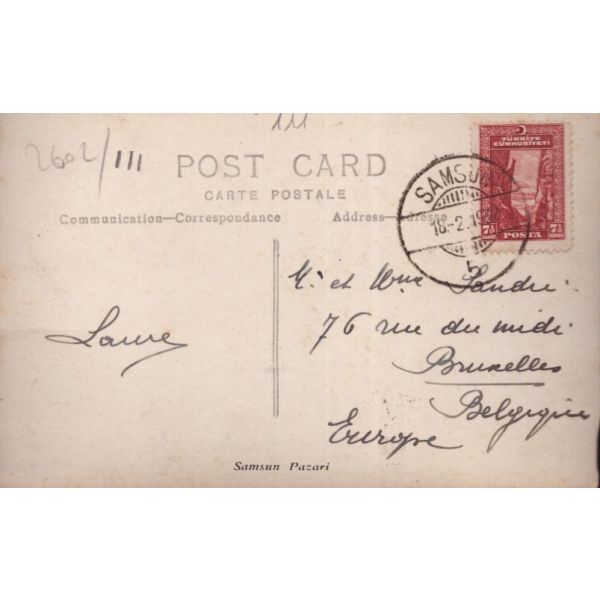 111
2602/111
POST CARD
CARTE POSTALE
Communication—Correspondance
Address—Adresse
TÜRKİYE
CÜMHURİYETİ
7½ POSTA 7½
SAMSUN
18-2
5
Laure
M. et Mme
76 rue du midi
Bruxelles
Belgique
Europe
Samsun Pazari